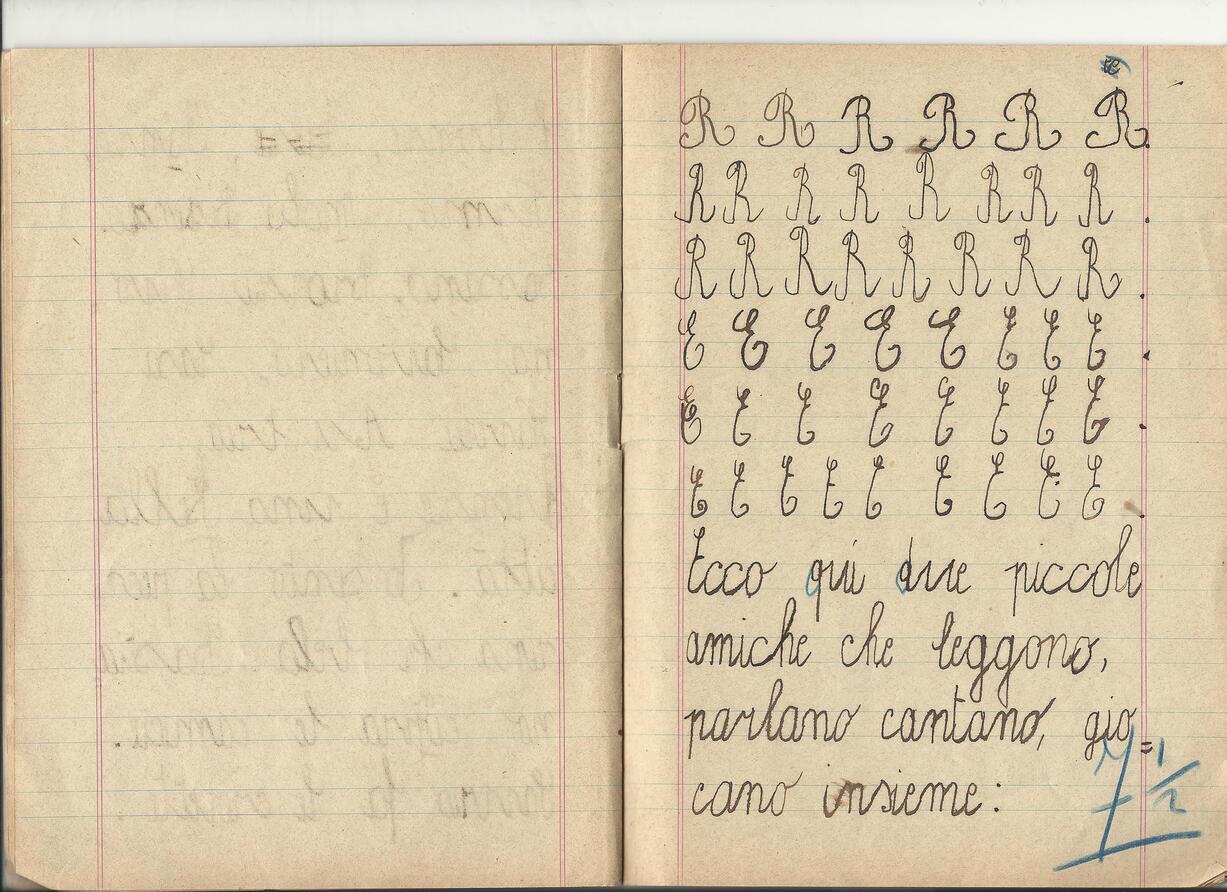 R R R R R R.
R R R R R R R R .
R R R R R R R R .
E E E E E E E E .
E E E E E E E E .
E E E E E E E E E .
Ecco qui due piccole
amiche che leggono,
parlano cantano, gio=
cano insieme:
7 1/2